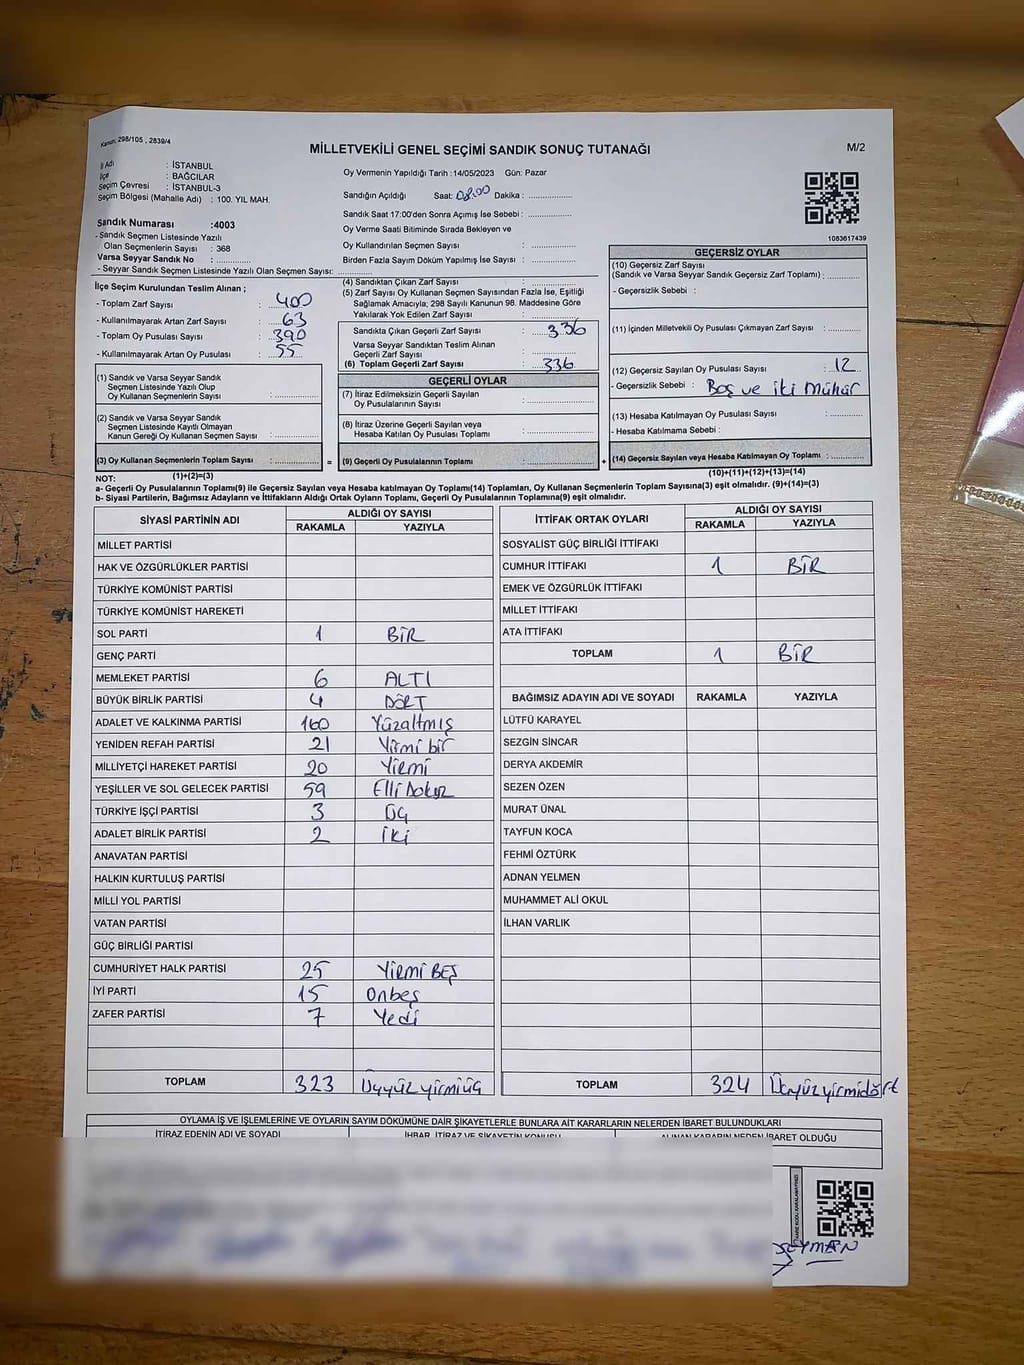 Kanun: 298/105 , 2839/4
MİLLETVEKİLİ GENEL SEÇİMİ SANDIK SONUÇ TUTANAĞI
M/2
İl Adı : İSTANBUL
İlçe : BAĞCILAR
Seçim Çevresi : İSTANBUL-3
Seçim Bölgesi (Mahalle Adı) : 100. YIL MAH.
Sandık Numarası :4003
- Sandık Seçmen Listesinde Yazılı
Olan Seçmenlerin Sayısı : 368
Varsa Seyyar Sandık No : ..................
- Seyyar Sandık Seçmen Listesinde Yazılı Olan Seçmen Sayısı: ..........
Oy Vermenin Yapıldığı Tarih :14/05/2023 Gün: Pazar
Sandığın Açıldığı Saat: 08.00 Dakika : ..................
Sandık Saat 17:00'den Sonra Açımış İse Sebebi : ..................
Oy Verme Saati Bitiminde Sırada Bekleyen ve
Oy Kullandırılan Seçmen Sayısı : ..................
Birden Fazla Sayım Döküm Yapılmış İse Sayısı : ..................
1083617439
İlçe Seçim Kurulundan Teslim Alınan ;
- Toplam Zarf Sayısı : 400
- Kullanılmayarak Artan Zarf Sayısı : 63
- Toplam Oy Pusulası Sayısı : 390
- Kullanılmayarak Artan Oy Pusulası : 55
(1) Sandık ve Varsa Seyyar Sandık
Seçmen Listesinde Yazılı Olup
Oy Kullanan Seçmenlerin Sayısı : ..................
(2) Sandık ve Varsa Seyyar Sandık
Seçmen Listesinde Kayıtlı Olmayan
Kanun Gereği Oy Kullanan Seçmen Sayısı : ..................
(3) Oy Kullanan Seçmenlerin Toplam Sayısı : .................. =
(1)+(2)=(3)
(4) Sandıktan Çıkan Zarf Sayısı : ..................
(5) Zarf Sayısı Oy Kullanan Seçmen Sayısından Fazla İse, Eşitliği
Sağlamak Amacıyla; 298 Sayılı Kanunun 98. Maddesine Göre
Yakılarak Yok Edilen Zarf Sayısı : ..................
Sandıkta Çıkan Geçerli Zarf Sayısı : 336
Varsa Seyyar Sandıktan Teslim Alınan
Geçerli Zarf Sayısı : ..................
(6) Toplam Geçerli Zarf Sayısı : 336
GEÇERLİ OYLAR
(7) İtiraz Edilmeksizin Geçerli Sayılan
Oy Pusulalarının Sayısı : ..................
(8) İtiraz Üzerine Geçerli Sayılan veya
Hesaba Katılan Oy Pusulası Toplamı : ..................
(9) Geçerli Oy Pusulalarının Toplamı : .................. +
GEÇERSİZ OYLAR
(10) Geçersiz Zarf Sayısı
(Sandık ve Varsa Seyyar Sandık Geçersiz Zarf Toplamı) : ..........
- Geçersizlik Sebebi :
(11) İçinden Milletvekili Oy Pusulası Çıkmayan Zarf Sayısı : ..........
(12) Geçersiz Sayılan Oy Pusulası Sayısı : 12
- Geçersizlik Sebebi : Boş ve iki Mühür
(13) Hesaba Katılmayan Oy Pusulası Sayısı : ..........
- Hesaba Katılmama Sebebi :
(14) Geçersiz Sayılan veya Hesaba Katılmayan Oy Toplamı : ..........
(10)+(11)+(12)+(13)=(14)
NOT:
a- Geçerli Oy Pusulalarının Toplamı(9) ile Geçersiz Sayılan veya Hesaba katılmayan Oy Toplamı(14) Toplamları, Oy Kullanan Seçmenlerin Toplam Sayısına(3) eşit olmalıdır. (9)+(14)=(3)
b- Siyasi Partilerin, Bağımsız Adayların ve İttifakların Aldığı Ortak Oyların Toplamı, Geçerli Oy Pusulalarının Toplamına(9) eşit olmalıdır.
SİYASİ PARTİNİN ADI ALDIĞI OY SAYISI
RAKAMLA YAZIYLA
MİLLET PARTİSİ
HAK VE ÖZGÜRLÜKLER PARTİSİ
TÜRKİYE KOMÜNİST PARTİSİ
TÜRKİYE KOMÜNİST HAREKETİ
SOL PARTİ 1 BİR
GENÇ PARTİ
MEMLEKET PARTİSİ 6 ALTI
BÜYÜK BİRLİK PARTİSİ 4 DÖRT
ADALET VE KALKINMA PARTİSİ 160 Yüzaltmış
YENİDEN REFAH PARTİSİ 21 Yirmi bir
MİLLİYETÇİ HAREKET PARTİSİ 20 Yirmi
YEŞİLLER VE SOL GELECEK PARTİSİ 59 Elli Dokuz
TÜRKİYE İŞÇİ PARTİSİ 3 üç
ADALET BİRLİK PARTİSİ 2 iki
ANAVATAN PARTİSİ
HALKIN KURTULUŞ PARTİSİ
MİLLİ YOL PARTİSİ
VATAN PARTİSİ
GÜÇ BİRLİĞİ PARTİSİ
CUMHURİYET HALK PARTİSİ 25 YİRMİ BEŞ
İYİ PARTİ 15 Onbeş
ZAFER PARTİSİ 7 Yedi
TOPLAM 323 Üçyüzyirmiüç
İTTİFAK ORTAK OYLARI ALDIĞI OY SAYISI
RAKAMLA YAZIYLA
SOSYALIST GÜÇ BİRLİĞİ İTTİFAKI
CUMHUR İTTİFAKI 1 BİR
EMEK VE ÖZGÜRLÜK İTTİFAKI
MİLLET İTTİFAKI
ATA İTTİFAKI
TOPLAM 1 BİR
BAĞIMSIZ ADAYIN ADI VE SOYADI RAKAMLA YAZIYLA
LÜTFÜ KARAYEL
SEZGİN SİNCAR
DERYA AKDEMİR
SEZEN ÖZEN
MURAT ÜNAL
TAYFUN KOCA
FEHMİ ÖZTÜRK
ADNAN YELMEN
MUHAMMET ALİ OKUL
İLHAN VARLIK
TOPLAM 324 Üçyüzyirmidört
OYLAMA İŞ VE İŞLEMLERİNE VE OYLARIN SAYIM DÖKÜMÜNE DAİR ŞİKAYETLERLE BUNLARA AİT KARARLARIN NELERDEN İBARET BULUNDUKLARI
İTİRAZ EDENİN ADI VE SOYADI İHBAR, İTİRAZ VE ŞİKAYETİN KONUSU ALINAN KARARIN NEDEN İBARET OLDUĞU